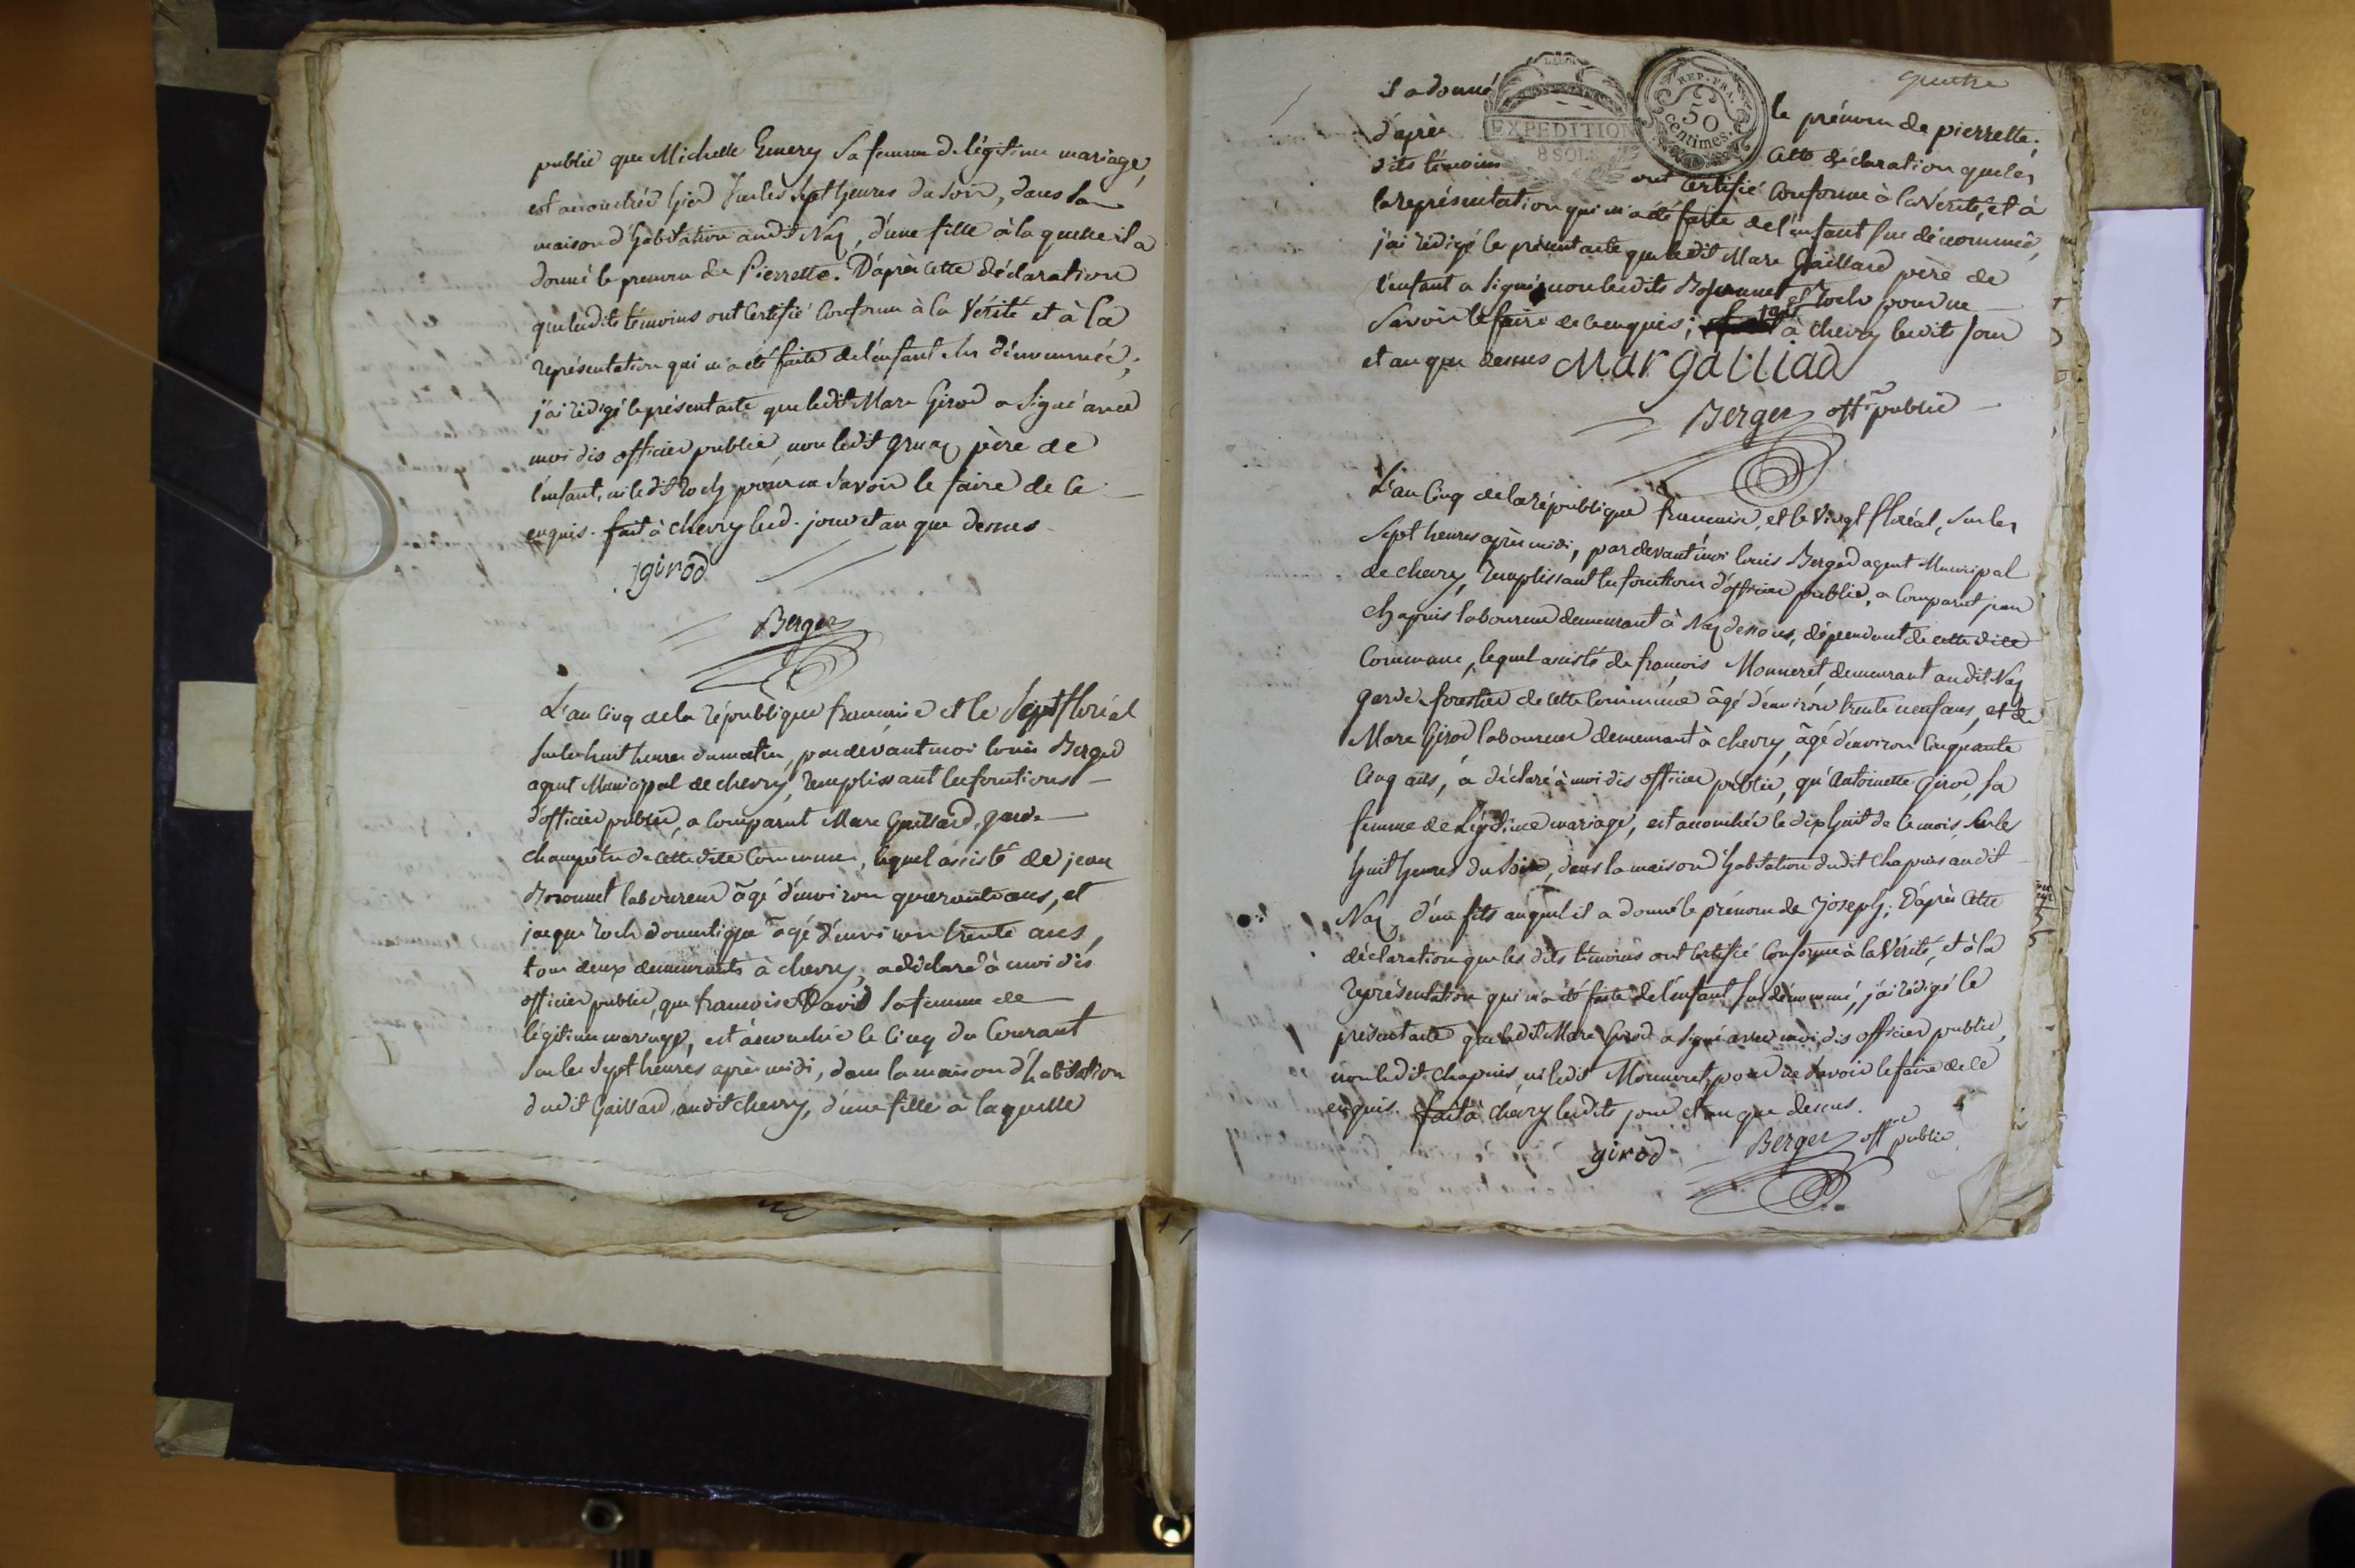 public que Michelle Emery sa femme de légitime mariage,
est accouchée hier sur les sept heures du soir, dans sa
maison d'habitation audit Naz, d'une fille à la quelle il a
donné le prenom de Pierrette. D'après cette déclaration
que lesdits témoins ont certifié conforme à la Vérité et à la
représentation qui m'a été faite de l'enfant sus dénommée,
j'ai rédigé le présent acte que ledit Marc Girod a signé avec
moi dis officier public, non ledit gruaz père de
l'enfant, ni ledit Roch pour ne savoir le faire de ce
enquis. fait à chevry lesd. jour et an que dessus
girod
Berger
L'an cinq de la république francaise et le sept floréal
sur les huit heures du matin, pardevant moi louis Berger
agent Municipal de chevry, remplissant les fonctions
d'officier public, a comparut Marc Gaillard, garde
champêtre de cette dite commune, lequel assisté de jean
laboureur âgé d'environ quarante ans, et
jacque Roch domestique âgé d'environ trente ans,
tous deux demeurants à chevry, a déclaré à moi dis
officier public, que francoise David sa femme de
légitime mariage, est accouchée le cinq du courant
sur les sept heures après midi, dans la maison d'habitation
dudit Gaillard, audit chevry, d'une fille à laquelle
quatre
LA LOI
EXPEDITION
8 SOLS
REP. FRA.
50
centimes.
il a donné le prénom de pierrette.
d'après cette déclaration que les
dits témoins ont certifié conforme à la Vérité, et à
la représentation qui m'a été faite de l'enfant sus dénommée,
j'ai rédigé le présent acte que ledit Marc Gaillard père de
l'enfant a signé, non lesdits et Roch pour ne
savoir le faire de ce enquis; fait à chevry lesdits jour
et an que dessus Mar galliad
Berger offr public
L'an cinq de la république francaise, et le vingt floréal, sur les
sept heures après midi, pardevant moi louis Berger agent Municipal
de chevry, remplissant les fonctions d'officier public, a comparut jean
chapuis laboureur demeurant à Naz dessous, dépendant de cette dite
commune, lequel assisté de francois Monneret, demeurant audit Naz
garde forestier de cette commune âgé d'environ trente neuf ans, et de
Marc Girod laboureur demeurant à chevry, âgé d'environ cinquante
cinq ans, a déclaré à moi dis officier public, qu'Antoinette Girod, sa
femme de Légitime mariage, est accouchée le dix huit de ce mois, sur les
huit heures du soir, dans la maison d'habitation dudit chapuis audit
Naz, d'un fils auquel il a donné le prénom de Joseph; D'après cette
déclaration que les dits témoins ont certifié conforme à la Vérité, et à la
représentation qui m'a été faite de l'enfant sus dénommé, j'ai rédigé le
présent acte que ledit Marc Girod a signé avec moi dis officier public,
non ledit chapuis, ni ledit Monneret, pour ne savoir le faire de ce
enquis. fait à chevry lesdits jour et an que dessus.
girod Berger offer public